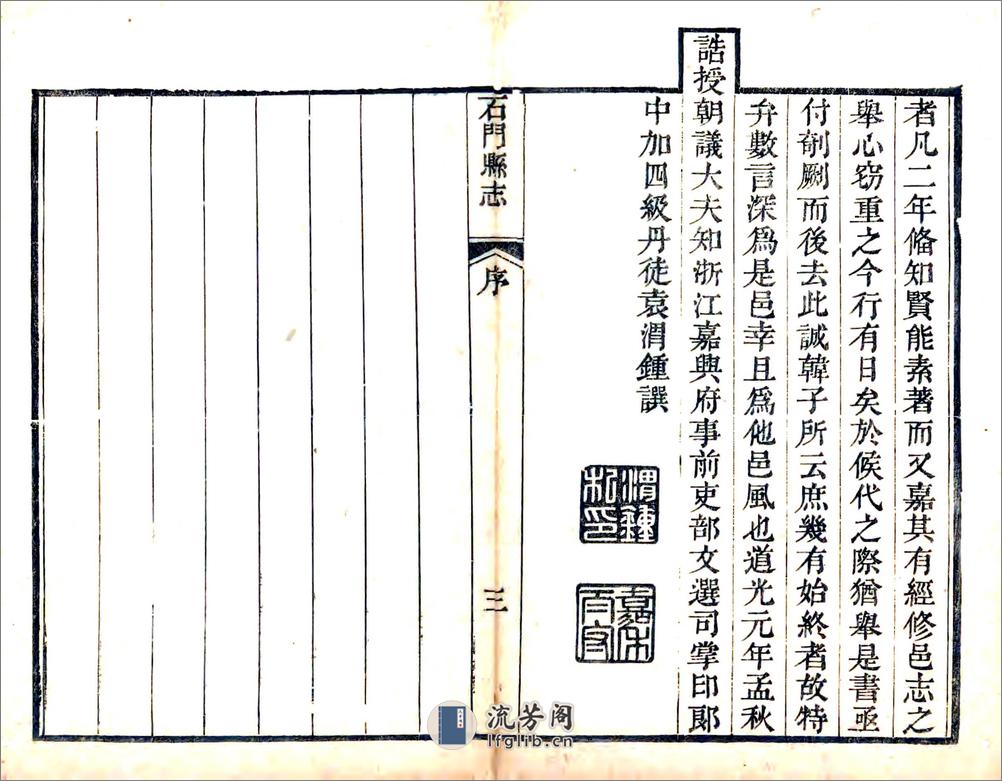 者凡二年偹知賢能素著而又嘉其有經修邑志之
舉心窃重之今行有日矣於候代之際猶舉是書亟
付剞劂而後去此誠韓子所云庶幾有始終者故特
弁數言深爲是邑幸且爲他邑風也道光元年孟秋
誥授朝議大夫知浙江嘉興府事前吏部文選司掌印郎
中加四級丹徒袁渭鍾譔
渭鍾私印
石門縣志
序
三
流芳阁
lfglib.cn